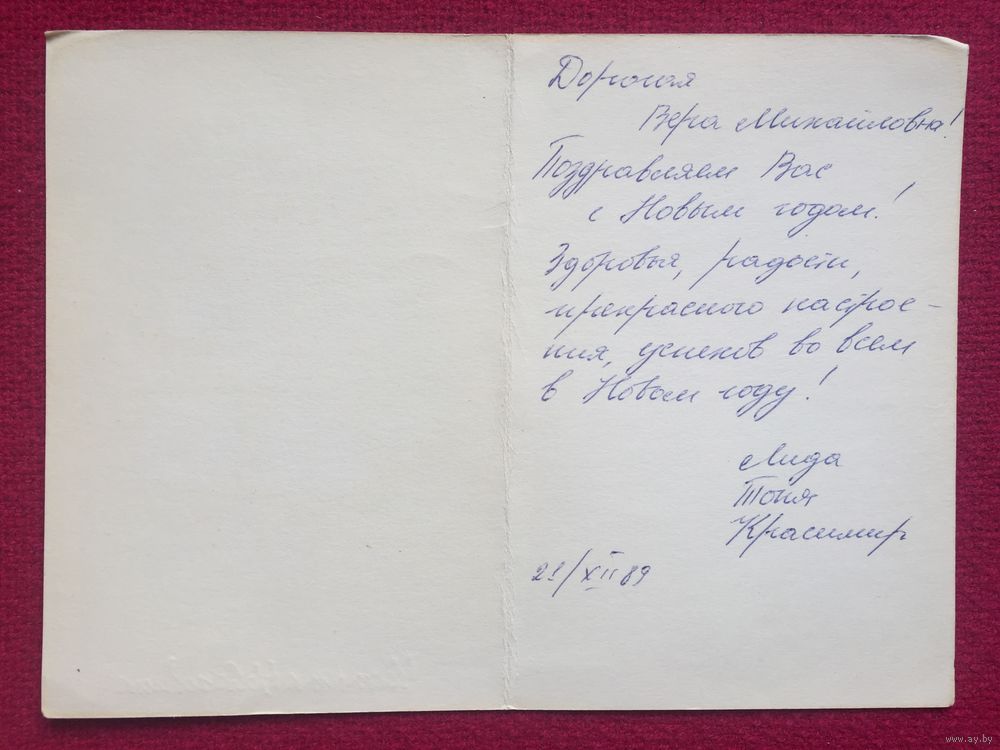 Дорогая
Вера Михайловна!
Поздравляем Вас
с Новым годом!
Здоровья, радости,
прекрасного настрое-
ния, успехов во всем
в Новом году!
Лида
Тоня
Красимир
21/XII 89
www.ay.by